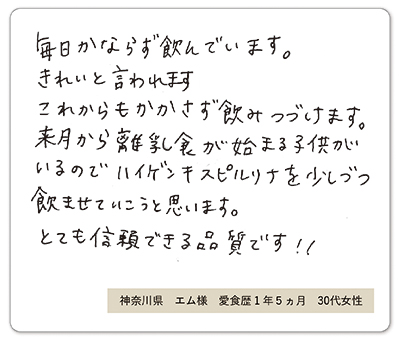 毎日かならず飲んでいます。
きれいと言われます
これからもかかさず飲みつづけます。
来月から離乳食が始まる子供が
いるのでハイゲンキスピルリナを少しづつ
飲ませていこうと思います。
とても信頼できる品質です!!
神奈川県　エム様　愛食歴1年5ヵ月　30代女性